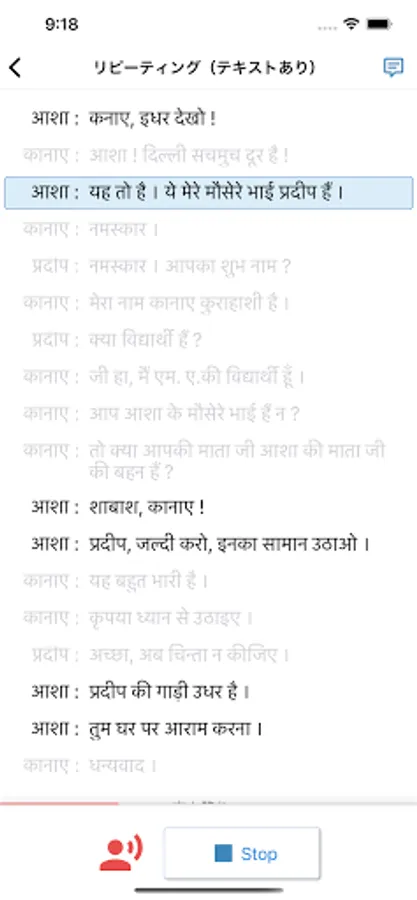 9:18
リピーティング（テキストあり）
आशा : कनाए, इधर देखो !
कानाए : आशा ! दिल्ली सचमुच दूर है !
आशा : यह तो है । ये मेरे मौसेरे भाई प्रदीप हैं ।
कानाए : नमस्कार ।
प्रदीप : नमस्कार । आपका शुभ नाम ?
कानाए : मेरा नाम कानाए कुराहाशी है ।
प्रदीप : क्या विद्यार्थी हैं ?
कानाए : जी हा, मैं एम. ए.की विद्यार्थी हूँ ।
कानाए : आप आशा के मौसेरे भाई हैं न ?
कानाए : तो क्या आपकी माता जी आशा की माता जी
की बहन हैं ?
आशा : शाबाश, कानाए !
आशा : प्रदीप, जल्दी करो, इनका सामान उठाओ ।
कानाए : यह बहुत भारी है ।
कानाए : कृपया ध्यान से उठाइए ।
प्रदीप : अच्छा, अब चिन्ता न कीजिए ।
आशा : प्रदीप की गाड़ी उधर है ।
आशा : तुम घर पर आराम करना ।
कानाए : धन्यवाद ।
Stop